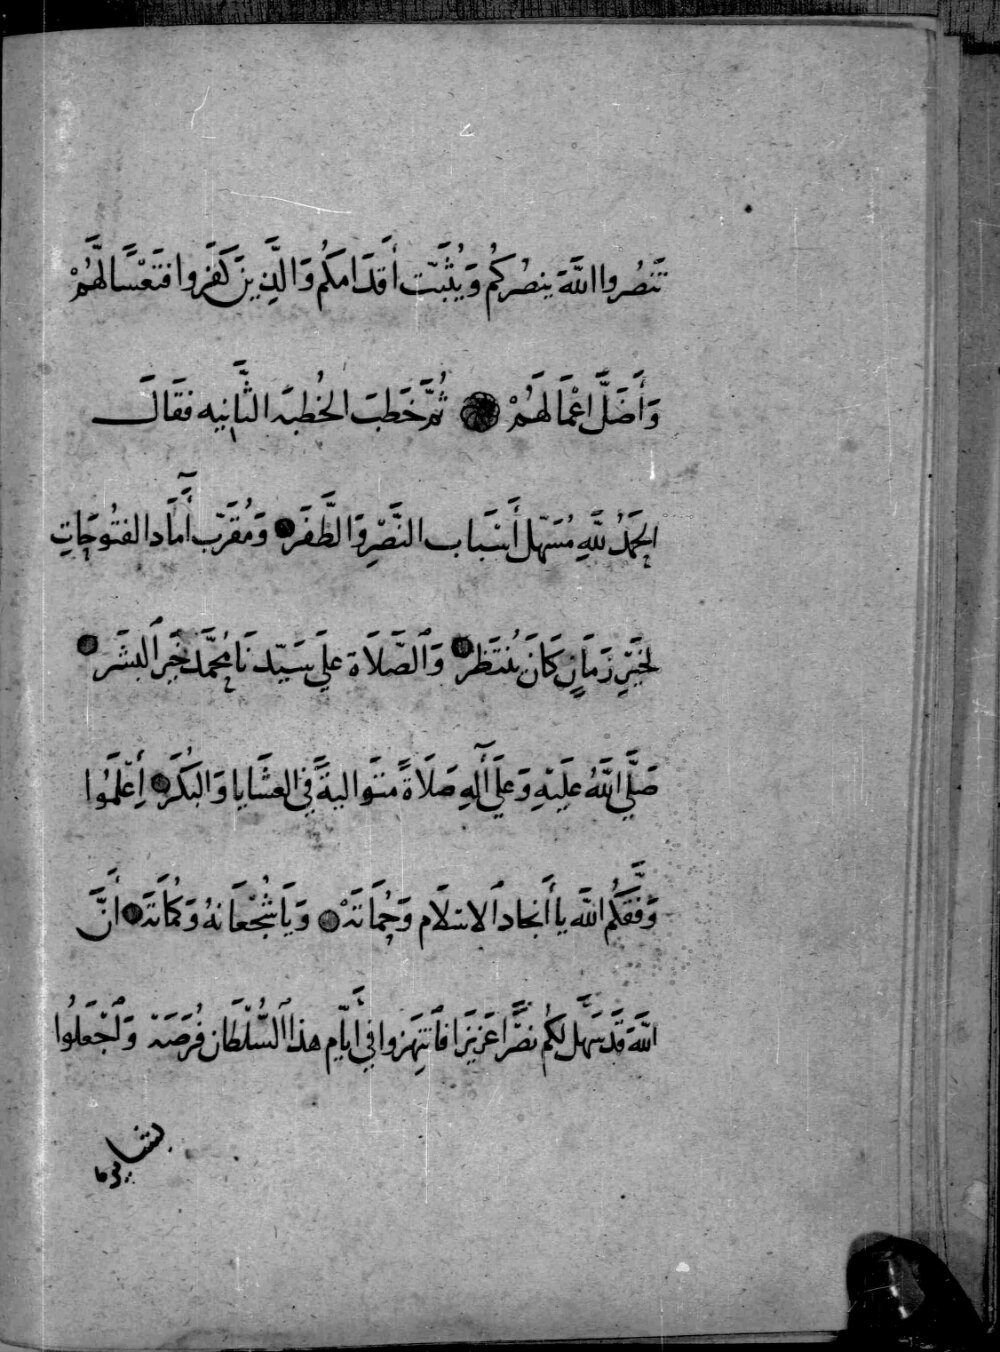 تَنصُرُوا اللَّهَ يَنصُرْكُمْ وَيُثَبِّت أَقدَامَكُم وَالَّذِينَ كَفَرُوا فَتَعْسًا لَّهُمْ
وَأَضَلَّ اعْمَالَهُمْ ثُمَّ خَطَبَ الخُطبَه الثَّانِيه فَقَالَ
الحَمدُ للَّهِ مُسَهّل أَسْبَاب النَّصْرِ وَالظَّفَر وَمُقَرّب أَمَاد الفتُوحَاتِ
لخَيرِ زَمَانٍ كَانَ يُنتَظر وَالصَّلَاة عَلَي سَيّدنَا مُحَمَّد خَيرِ البَشَر
صَلَّي اللَّهُ عَلَيْهِ وَعَلَي آلِهِ صَلَاةً متوَاليةً في العشَايا وَالبُكَر اِعْلَمُوا
وَفَّقَكُم اللَّه يا أَنجاد الاسْلَام وَحُمَاتَهْ وَيَا شُجْعَانهُ وَكُمَاتَه أَنَّ
اللَّهَ قَد سَهَّل لَكُم نَصْرًا عَزيزًا فَانتَهِزوا في أَيَّام هذا السُّلْطَان فُرصَه وَاجْعَلُوا